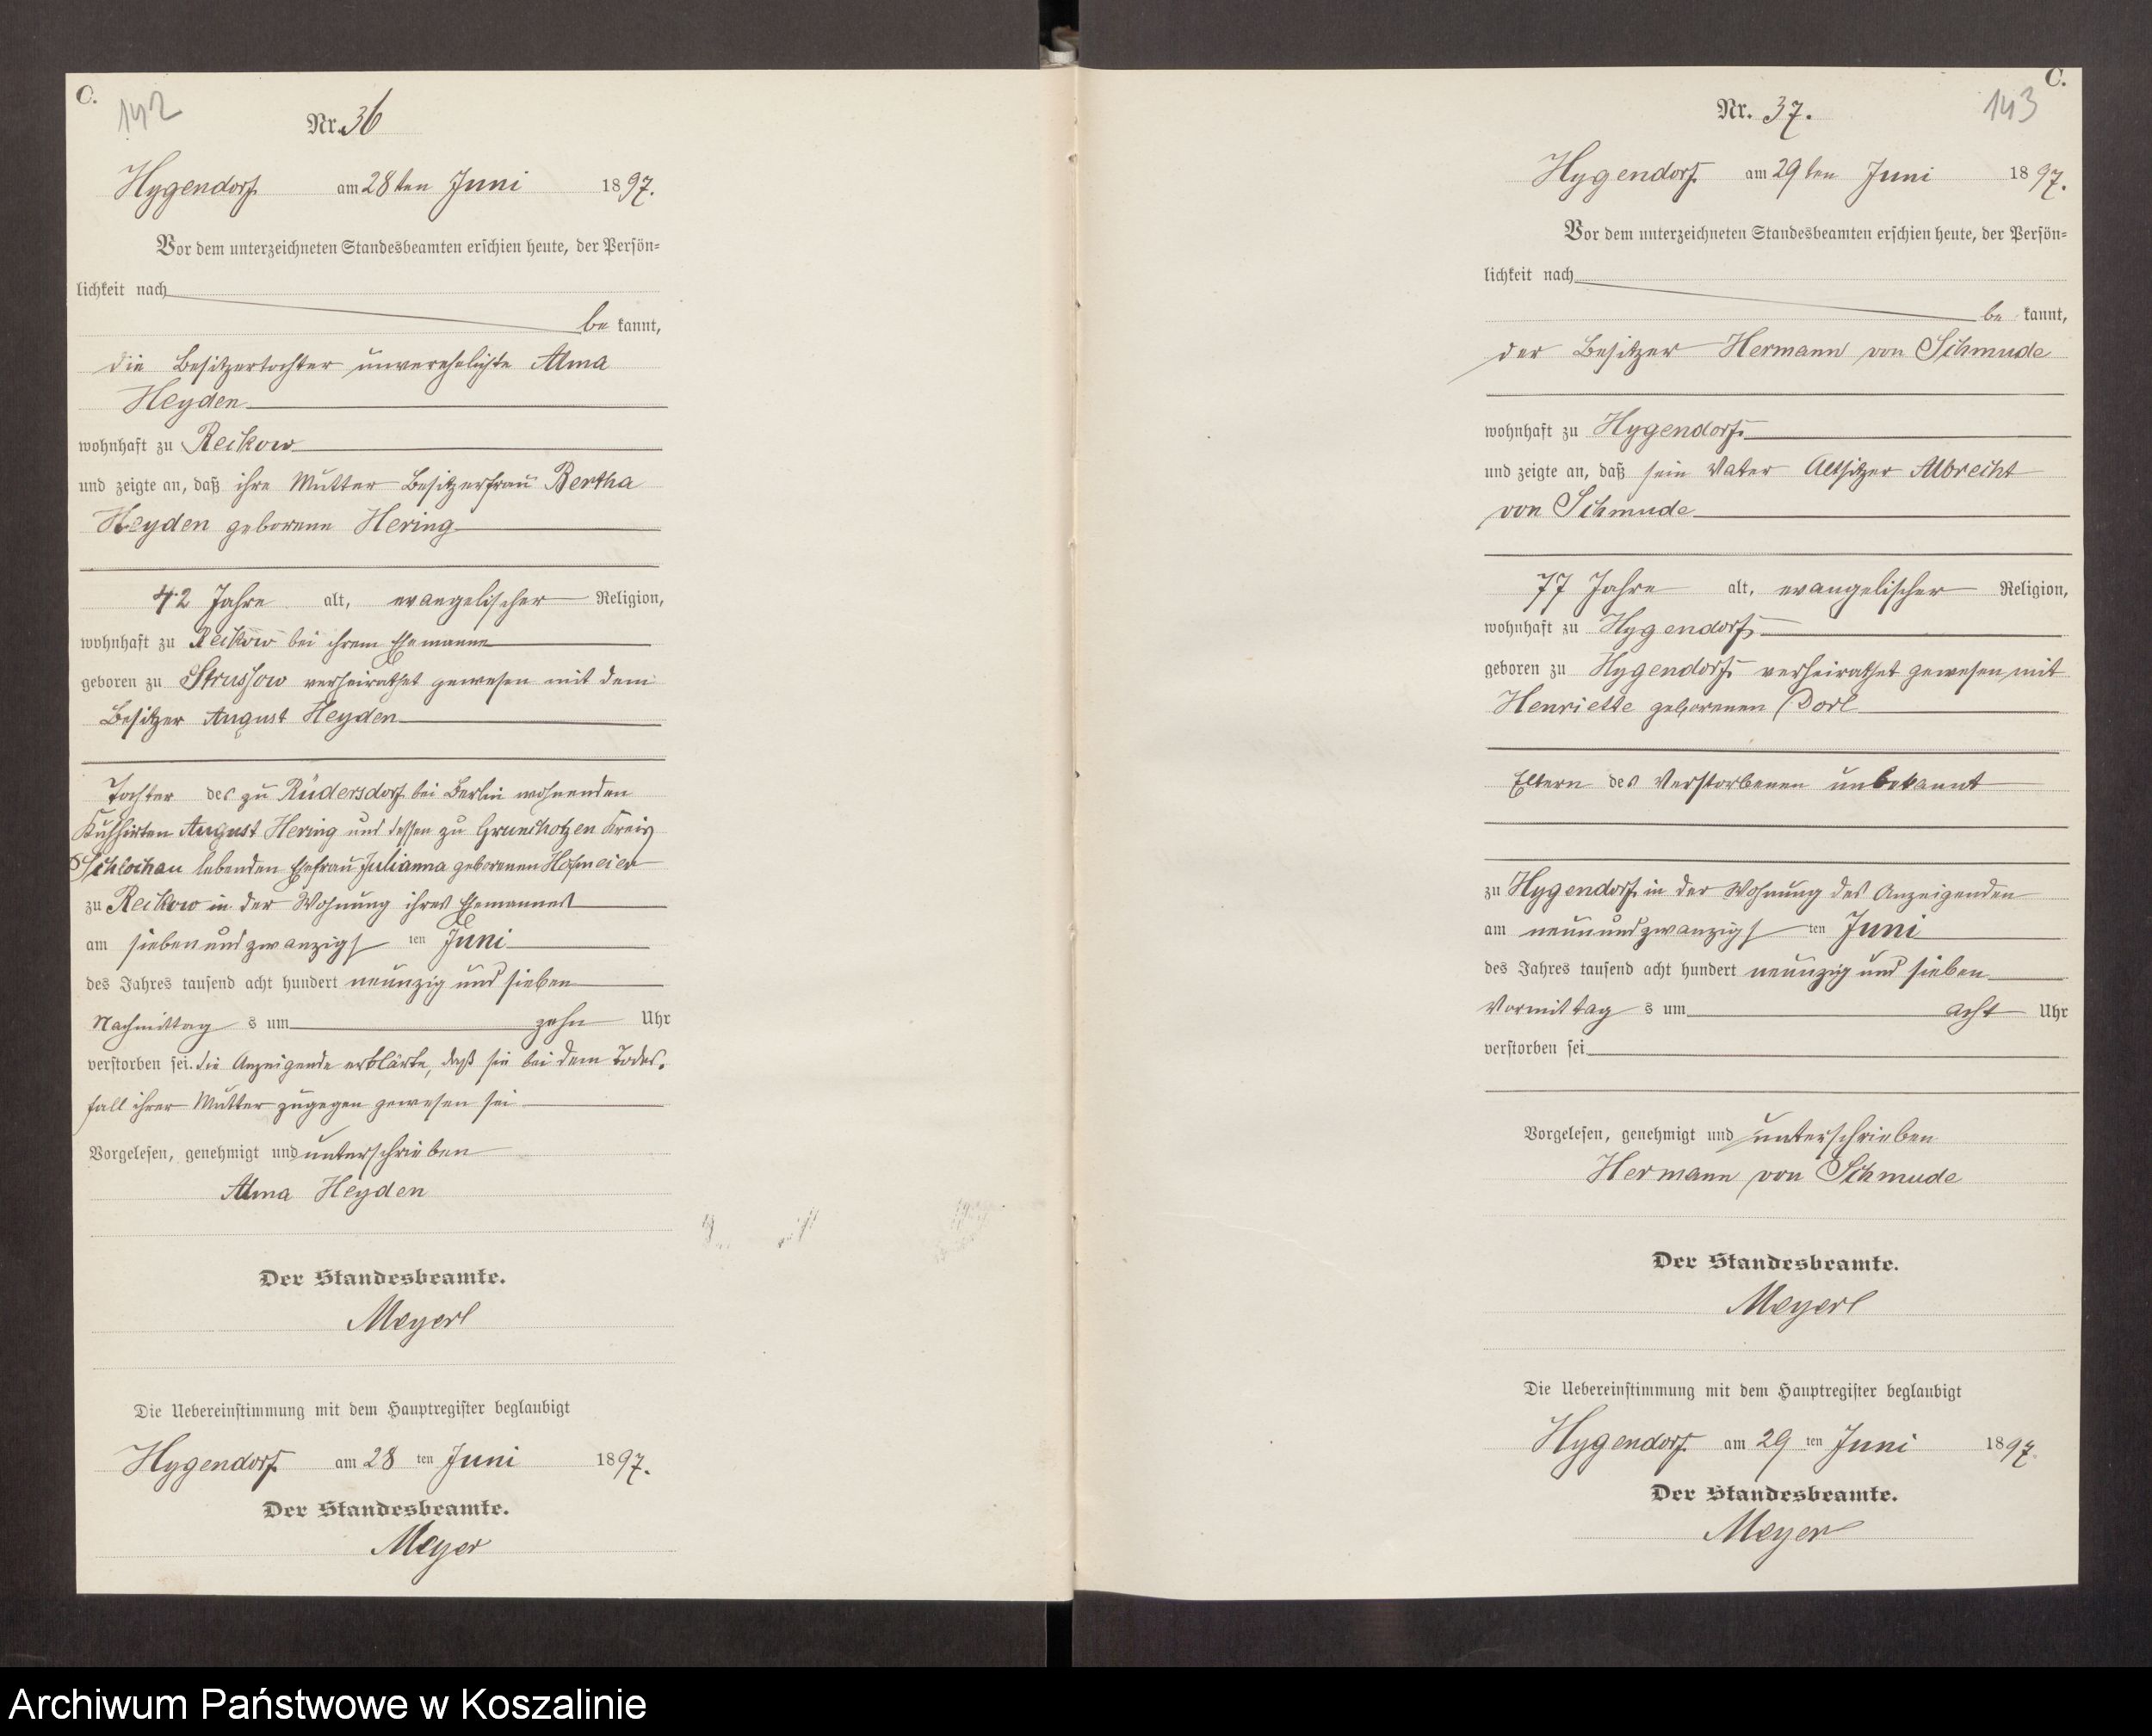 C.
142
Nr. 36
Hygendorf am 28ten Juni 1897.
Vor dem unterzeichneten Standesbeamten erschien heute, der Persön-
lichkeit nach
be kannt,
die Besitzertochter unverehelichte Alma
Heyden
wohnhaft zu Reikow
und zeigte an, daß ihre Mutter Besitzerfrau Bertha
Heyden geborene Hering
42 Jahre alt, evangelischer Religion,
wohnhaft zu Reikow bei ihrem Ehemanne
geboren zu Strussow verheirathet gewesen mit dem
Besitzer August Heyden
Tochter des zu Rüdersdorf bei Berlin wohnenden
Kuhhirten August Hering und dessen zu Grunchotzen Kreis
Schlochau lebenden Ehefrau Julianna geborenen Hofmeier
zu Reikow in der Wohnung ihres Ehemannes
am siebenundzwanzigs ten Juni
des Jahres tausend acht hundert neunzig und sieben
Nachmittag s um zehn Uhr
verstorben sei. Die Anzeigende erklärte, daß sie bei dem Todes-
fall ihrer Mutter zugegen gewesen sei
Vorgelesen, genehmigt und unterschrieben
Alma Heyden
Der Standesbeamte.
Meyer
Die Uebereinstimmung mit dem Hauptregister beglaubigt
Hygendorf am 28 ten Juni 1897.
Der Standesbeamte.
Meyer
C.
143
Nr. 37.
Hygendorf am 29ten Juni 1897.
Vor dem unterzeichneten Standesbeamten erschien heute, der Persön-
lichkeit nach
be kannt,
der Besitzer Hermann von Schmude
wohnhaft zu Hygendorf
und zeigte an, daß sein Vater Altsitzer Albrecht
von Schmude
77 Jahre alt, evangelischer Religion,
wohnhaft zu Hygendorf
geboren zu Hygendorf verheirathet gewesen mit
Henriette geborenen Dorl
Eltern des Verstorbenen unbekannt
zu Hygendorf in der Wohnung des Anzeigenden
am neunundzwanzigs ten Juni
des Jahres tausend acht hundert neunzig und sieben
Vormittag s um acht Uhr
verstorben sei
Vorgelesen, genehmigt und unterschrieben
Hermann von Schmude
Der Standesbeamte.
Meyer
Die Uebereinstimmung mit dem Hauptregister beglaubigt
Hygendorf am 29 ten Juni 1897.
Der Standesbeamte.
Meyer
Archiwum Państwowe w Koszalinie